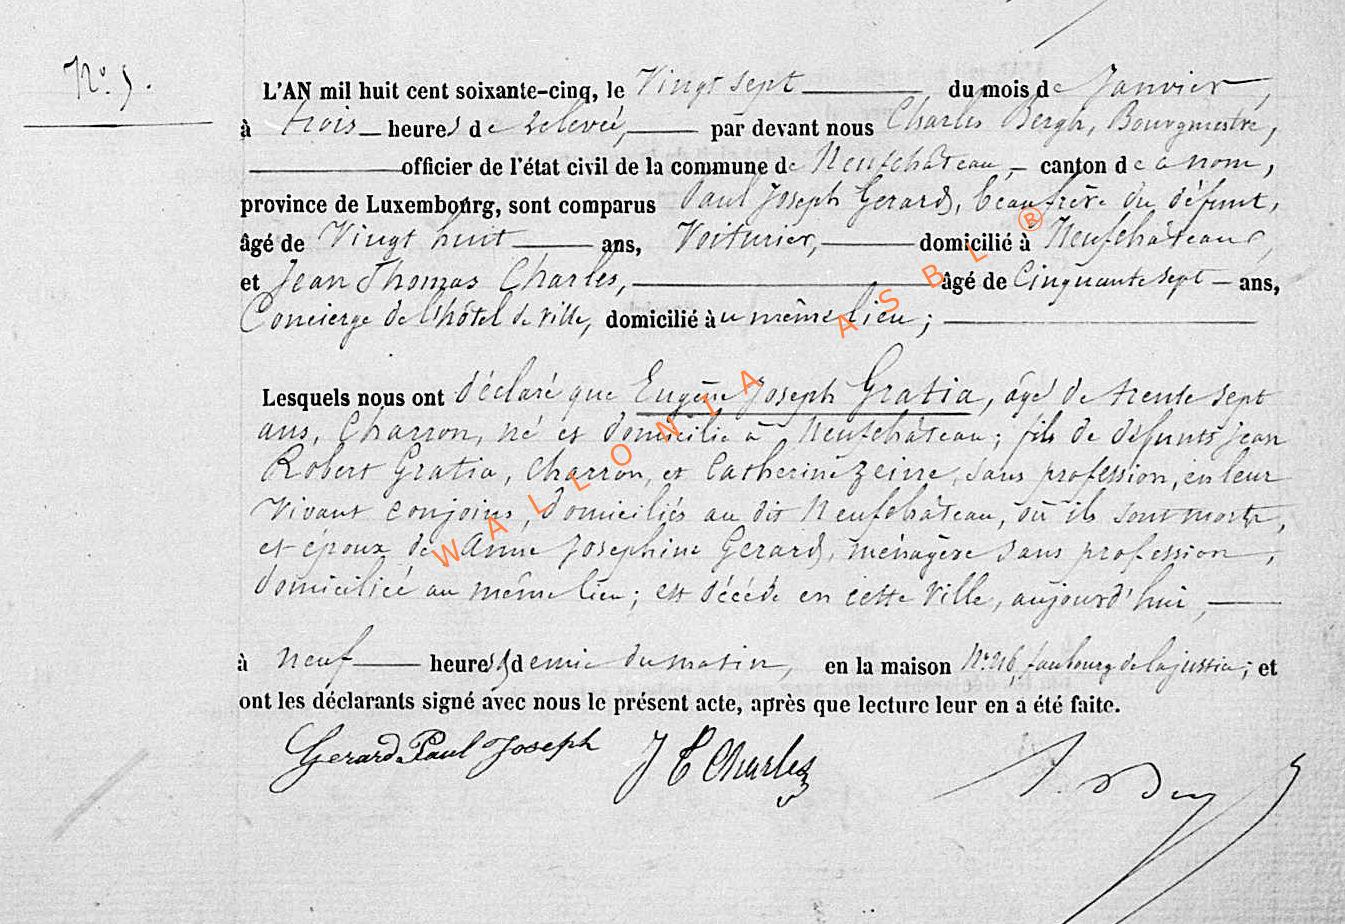 N° 5.
L'AN mil huit cent soixante-cinq, le Vingt sept du mois de Janvier,
à trois heures de relevée, par devant nous Charles Bergh, Bourgmestre,
officier de l'état civil de la commune de Neufchâteau, canton de ce nom,
province de Luxembourg, sont comparus Paul Joseph Gerard, beaufrère du défunt,
âgé de Vingt huit ans, Voiturier, domicilié à Neufchâteau,
et Jean Thomas Charles, âgé de Cinquante sept ans,
Concierge de l'hôtel de Ville, domicilié au même lieu ;
Lesquels nous ont déclaré que Eugène Joseph Gratia, âgé de trente sept
ans, Charron, né et domicilié à Neufchâteau ; fils de défunts Jean
Robert Gratia, Charron, et Catherine Zeine, sans profession, en leur
Vivant conjoins, domiciliés au dit Neufchâteau, où ils sont morts,
et époux de Anne Josephine Gerard, ménagère sans profession,
domiciliée au même lieu ; est décédé en cette Ville, aujourd'hui,
à neuf heures & demie du matin, en la maison N° 216, faubourg de la justice ; et
ont les déclarants signé avec nous le présent acte, après que lecture leur en a été faite.
Gerard Paul Joseph J T Charles
WALLONIA ASBL ®